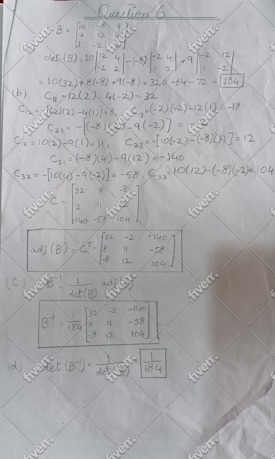 Question 6
B =
det(B) = 10 |12 4 -2 2| - (-8) |-2 4 1 2| + 9 |-2 12 1 -2|
= 10(32) + 8(-8) + 9(-8) = 320 - 64 - 72 = 184
(b) C11 = 12(2) - 4(-2) = 32
C12 = -[(-2)(2) - 4(1)] = 8, C13 = (-2)(-2) - 12(1) = -8
C21 = -[(-8)(2) - 9(-2)] =
C22 = 10(2) - 9(1) = 11, C23 = -[10(-2) - (-8)(1)] = 12
C31 = (-8)(4) - 9(12) = -140
C32 = -[10(4) - 9(-2)] = -58, C33 = 10(12) - (-8)(-2) = 104
C = [32 8 -8
2 11
-140 -58 104]
adj(B) = C^T = [32 -2 -140
8 11 -58
-8 12 104]
(C) B^-1 = 1/det(B) adj
B^-1 = 1/184 [32 -2 -140
8 11 -58
-8 12 104]
(d) det(B^-1) = 1/det = 1/184
fiverr.